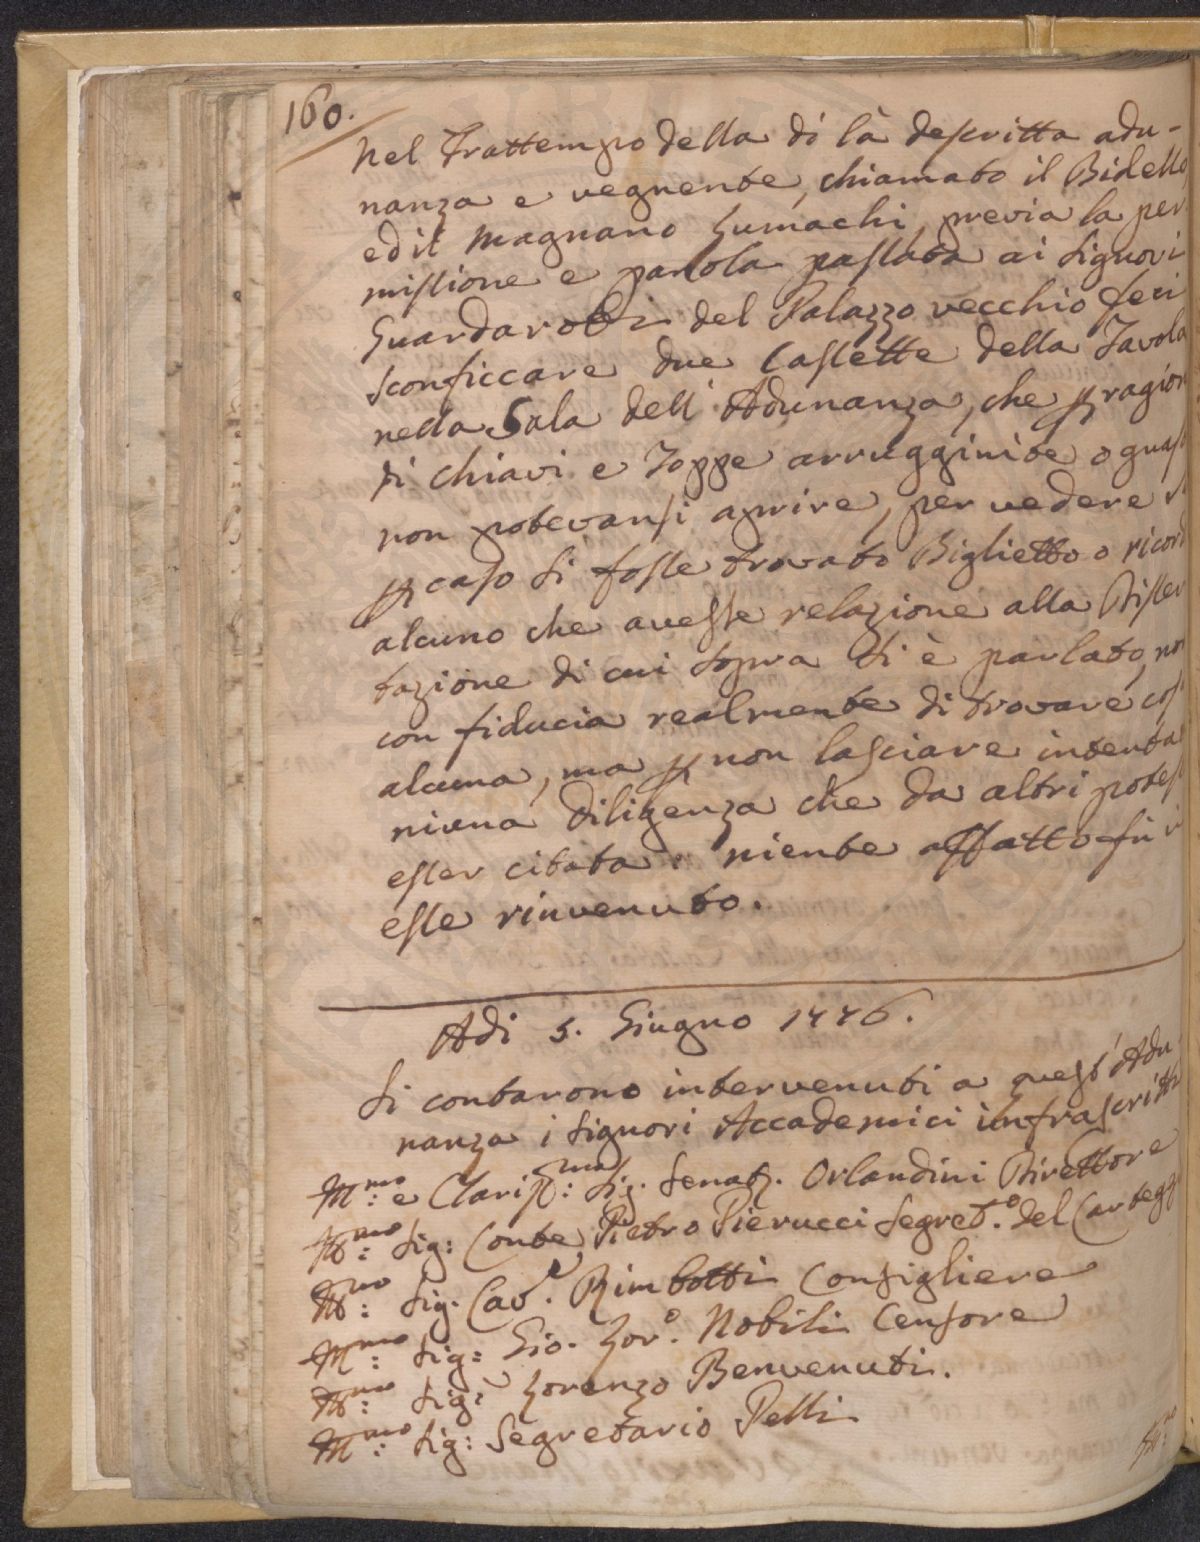 160.
Nel Frattempo della di là descritta adu-
nanza e vegnente, chiamato il Bidello,
ed il Magnano Gumachi, previa la per
missione e parola passata ai Signori
Guardarobi del Palazzo vecchio feci
sconficcare due Cassette della Tavola
nella Sala dell'Adunanza, che p ragion
di chiavi e Toppe arrugginite o guast
non potevansi aprire, per vedere s
p caso si fosse trovato Biglietto o ricord
alcuno che avesse relazione alla Disser
tazione di cui sopra si è parlato, non
con fiducia realmente di trovare cos
alcuna, ma p non lasciare intenta
niuna diligenza che da altri potess
esser citata: niente affatto fù i
esse rinvenuto.
Adi 5. Giugno 1776.
Si contarono intervenuti a quest'Adu
nanza i Signori Accademici infrascritti
Ill:mo e Clariss:mo Sig. Senat. Orlandini Direttore
Ill:mo Sig: Conte Pietro Pierucci Segret.o del Carteggi
Ill:mo Sig. Cav.e Rimbotti Consigliere
Ill:mo Sig: Gio. Lor.o Nobili Censore
Ill:mo Sig: Lorenzo Benvenuti.
Ill:mo Sig: Segretario Pelli
Ill:mo